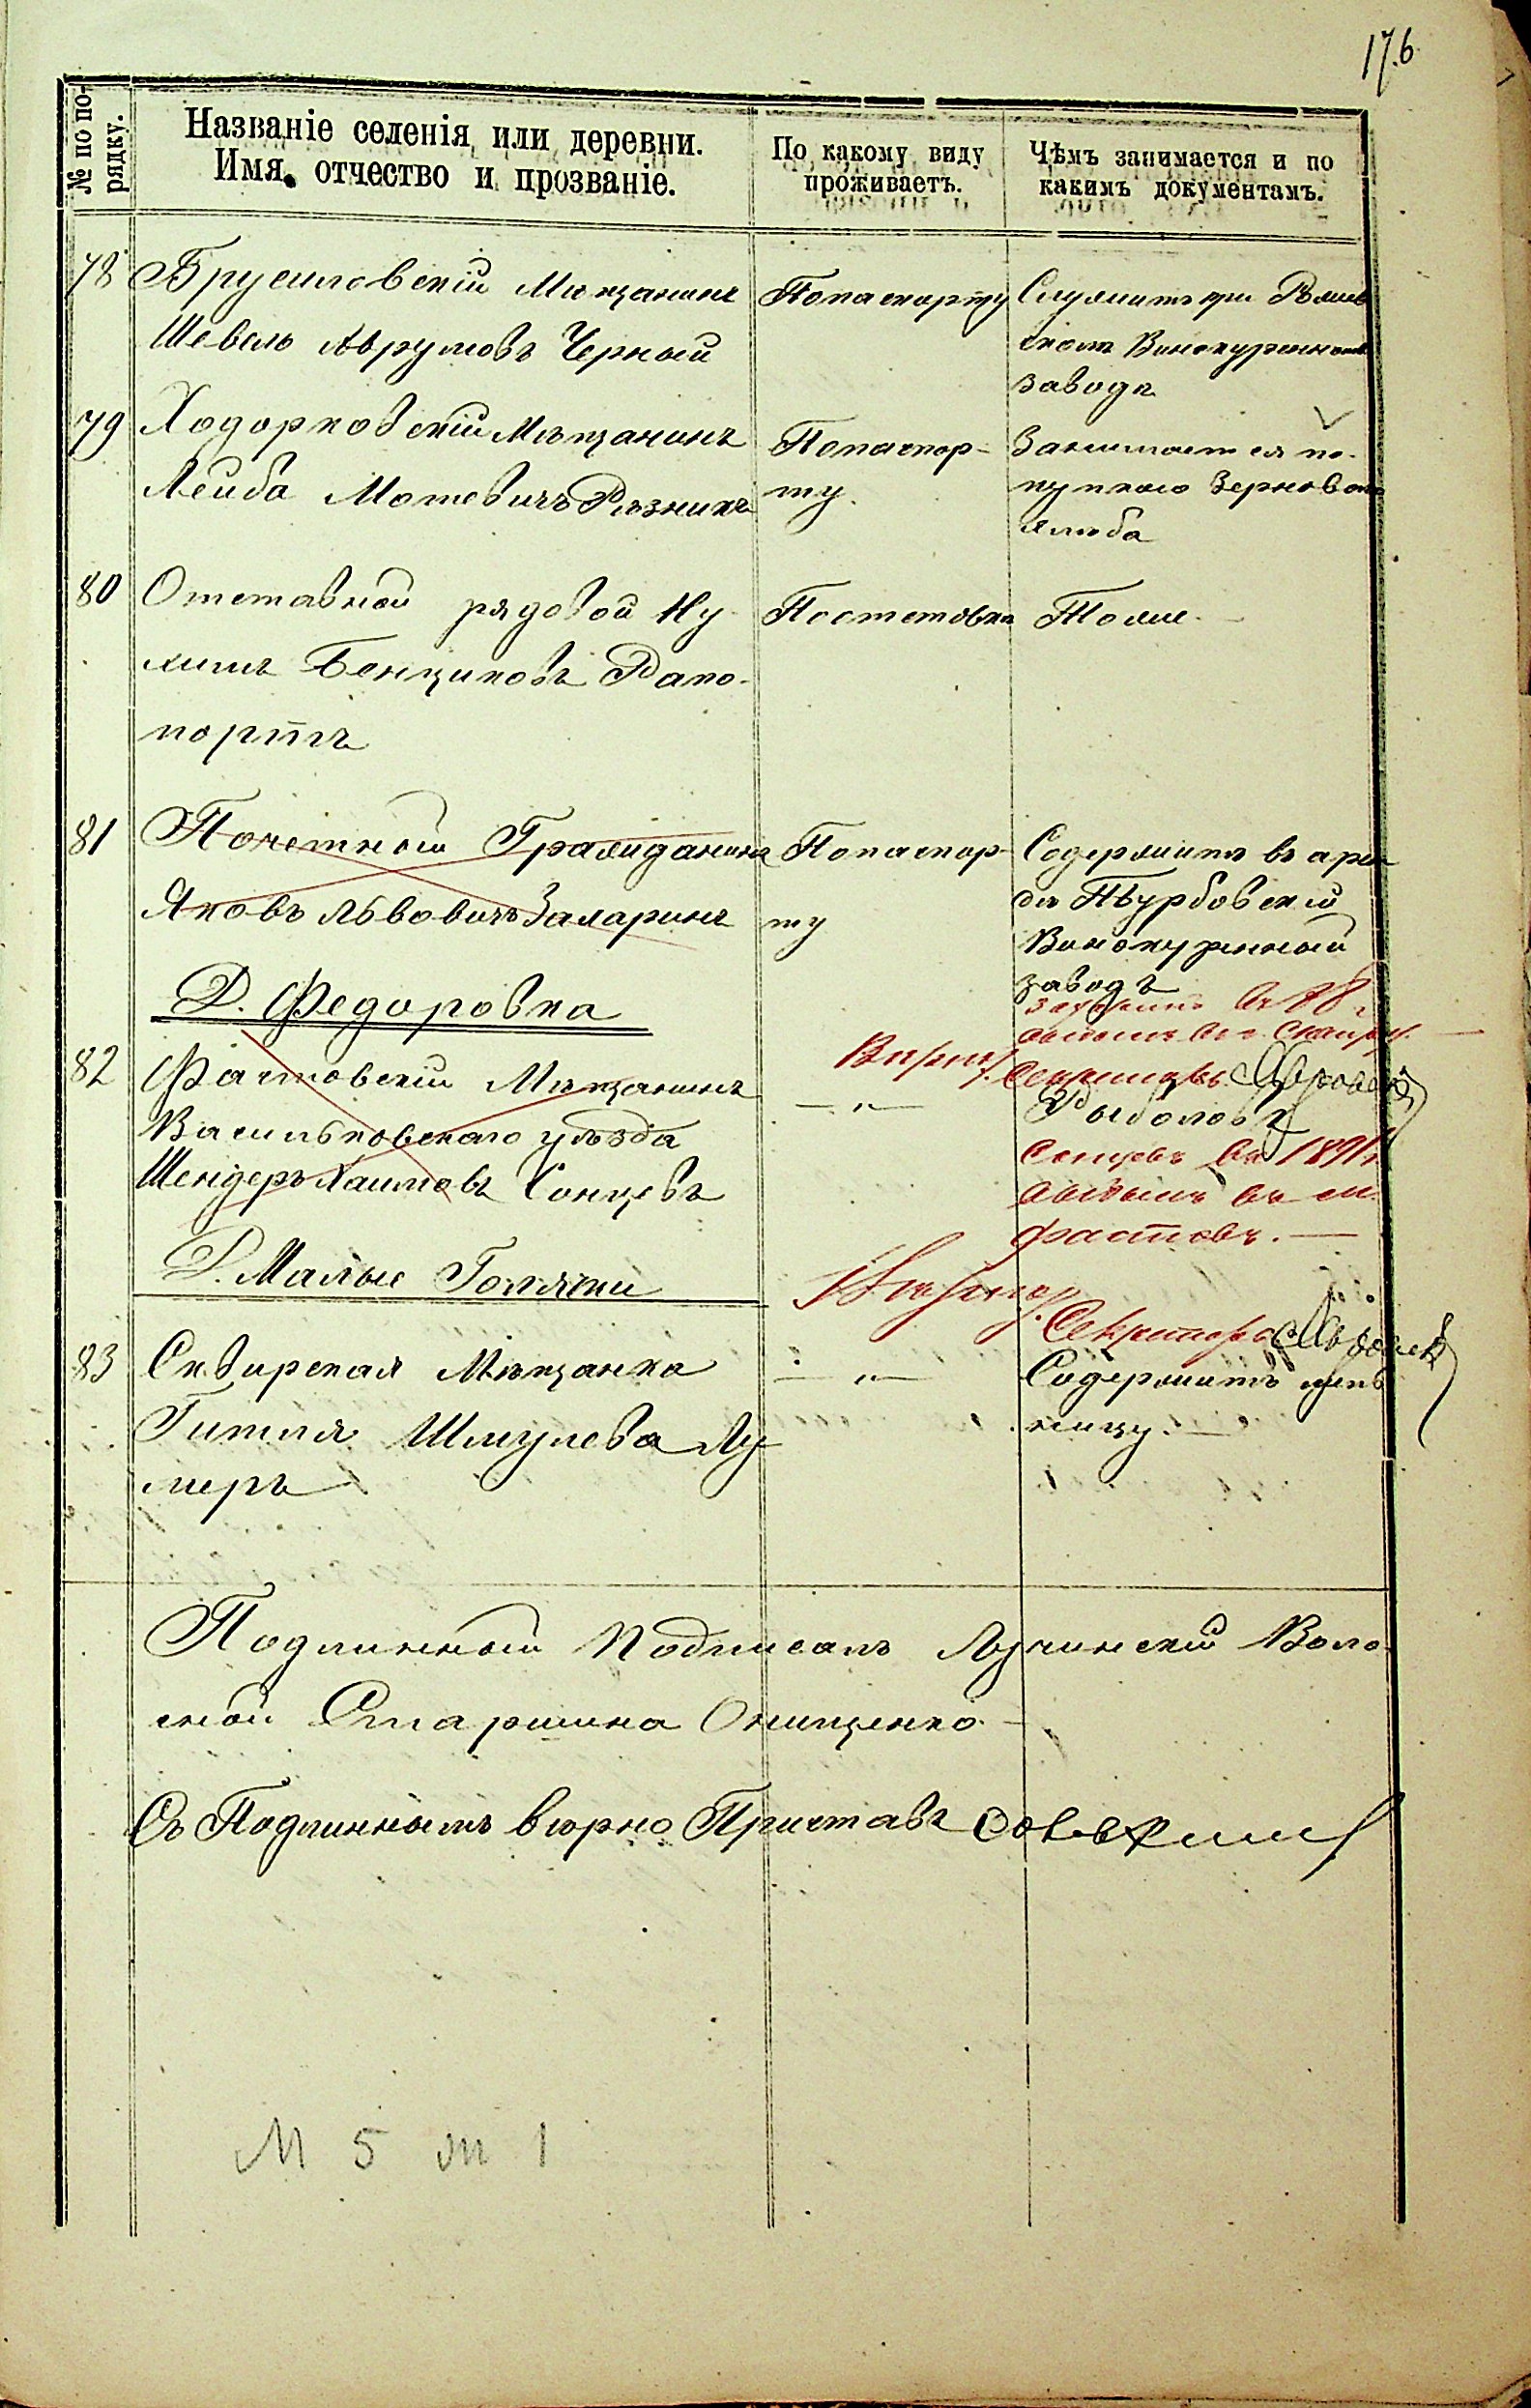 176.
№ по по-
рядку.
Названіе селенія или деревни.
Имя, отчество и прозваніе.
По какому виду
проживаетъ.
Чѣмъ занимается и по
какимъ документамъ.
78 Брусиловскій Мѣщанинъ
Шевель Аврумовъ Черный
По паспорту
Служитъ при
Винокуренномъ
заводѣ
79 Ходорковскій Мѣщанинъ
Лейба Мотевичъ Рѣзникъ
По паспор-
ту.
Занимается по-
купкою Зернового
хлѣба
80 Отставной рядовой Ну-
химъ Бенционовъ Рапо-
портъ
Тоже.
81 Почетный Гражданинъ
Яковъ Львовичъ
По паспор-
ту
Содержитъ въ арен
дѣ Турбовскій
Винокуренный
заводъ
Д. Федоровка
82 Фастовскій Мѣщанинъ
Васильковскаго уѣзда
Шендеръ Хаимовъ Сонцевъ
— " —
Рыболовъ
Секретарь
Сонцевъ въ 1891 г.
выбылъ въ м.
Фастовъ. —
Д. Малые Голяки
Секретарь
83 Сквирская Мѣщанка
Гитля Шмулева Лу-
меръ
— " —
Содержитъ мель
ницу. —
Подлинный подписалъ Лучинскій Воло-
стной Старшина Онищенко. —
Съ Подлиннымъ вѣрно Приставъ
М 5 m 1